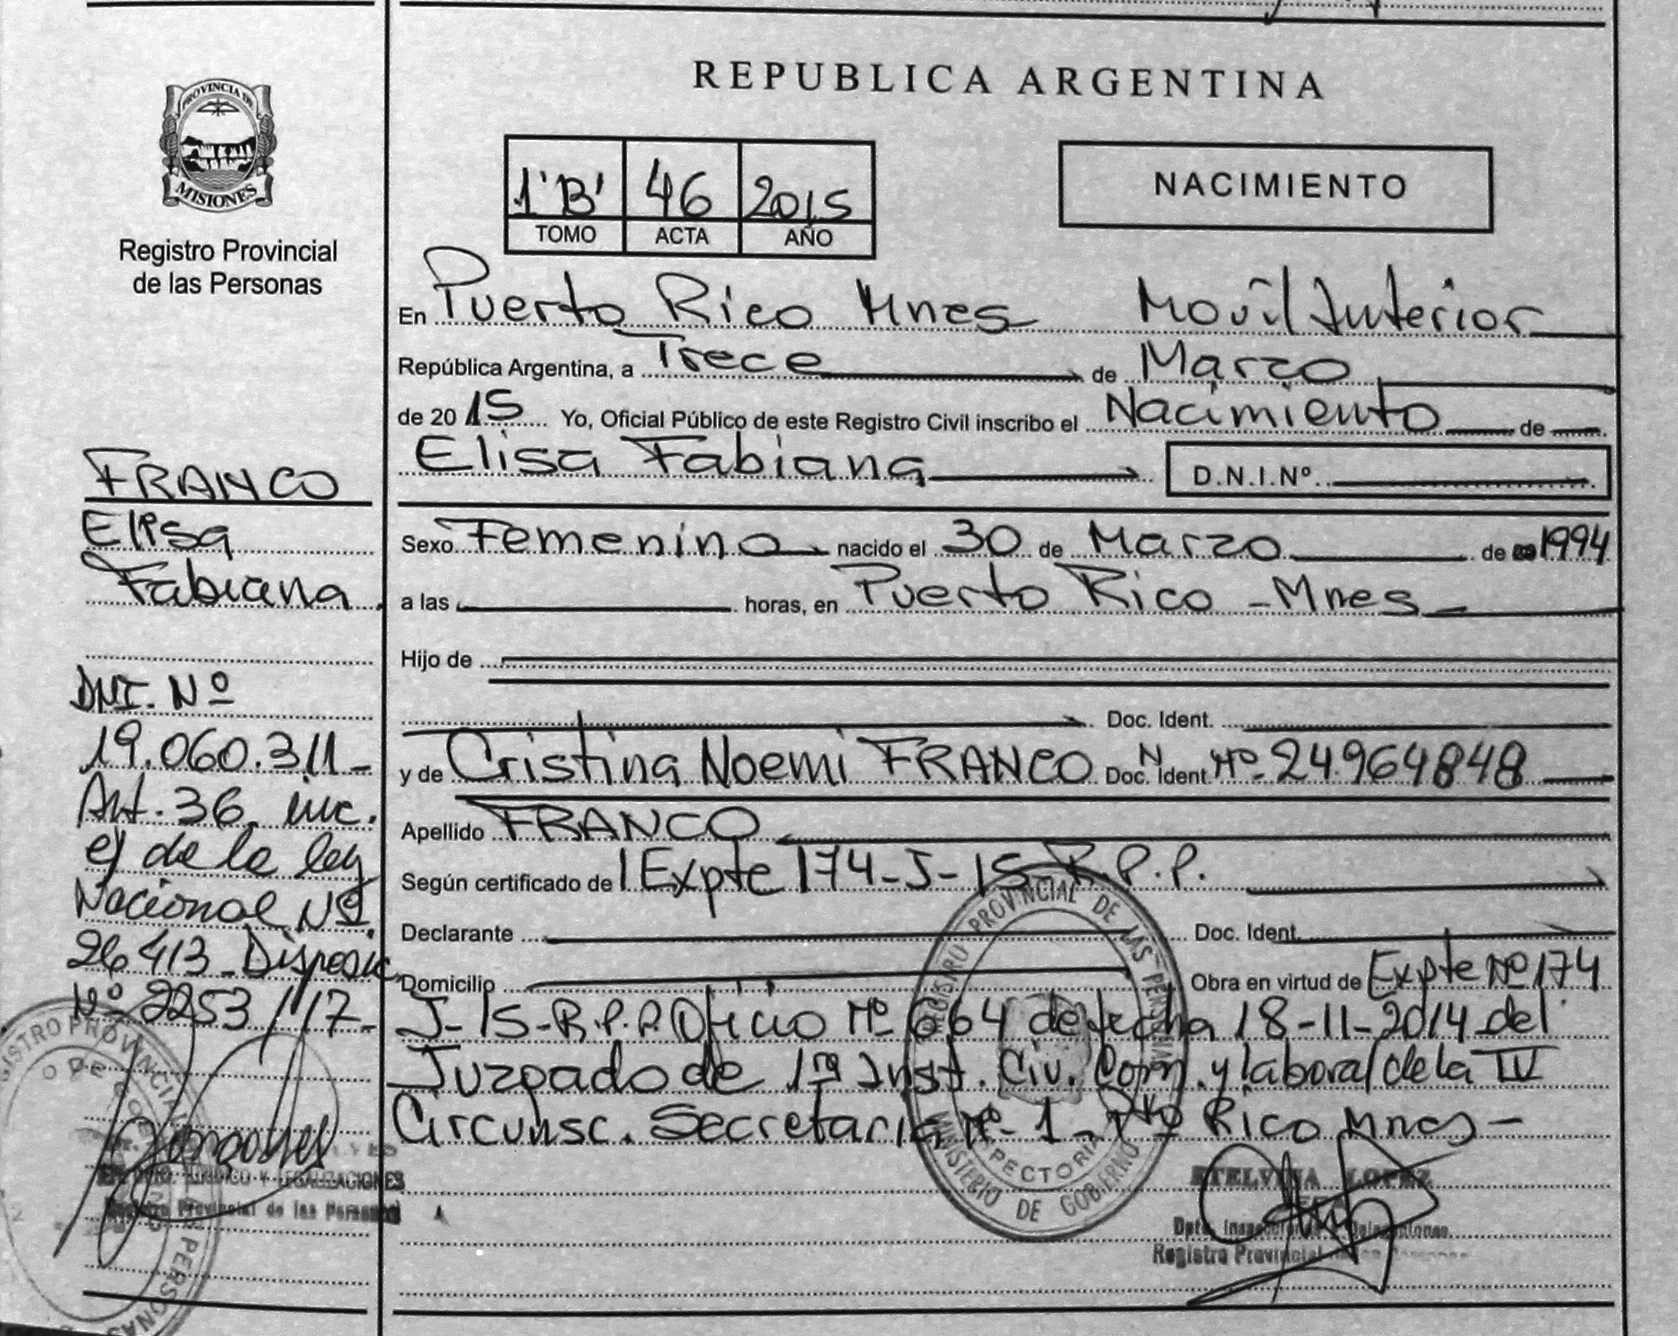 REPUBLICA ARGENTINA
PROVINCIA DE
MISIONES
Registro Provincial
de las Personas
1'B' 46 2015
TOMO ACTA AÑO
NACIMIENTO
En Puerto Rico Mnes Movil Interior
República Argentina, a Trece de Marzo
de 2015 Yo, Oficial Público de este Registro Civil inscribo el Nacimiento de
Elisa Fabiana D.N.I.Nº
Sexo Femenino nacido el 30 de Marzo de 1994
a las horas, en Puerto Rico - Mnes
Hijo de
Doc. Ident.
y de Cristina Noemi FRANCO Doc. Ident. Nº 24.964848
Apellido FRANCO
Según certificado de Expte 174-J-15-R.P.P.
Declarante Doc. Ident.
Domicilio Obra en virtud de Expte Nº 174
J-15-R.P.P. Oficio Nº 664 de fecha 18-11-2014 del
Juzgado de 1ra Inst. Civ. Com. y laboral de la IV
Circunsc. Secretaria Nº 1 - Pto Rico Mnes -
FRANCO
Elisa
Fabiana
DNI. Nº
19.060.311-
Art. 36. inc.
e) de la ley
Nacional Nº
26413_Disposic
Nº 2253/17-
REGISTRO PROVINCIAL DE LAS PERSONAS
INSPECTORIA
MINISTERIO DE GOBIERNO
ETELVINA LOPEZ
Registro Provincial de las Personas
JURIDICO Y LEGALIZACIONES
Registro Provincial de las Personas